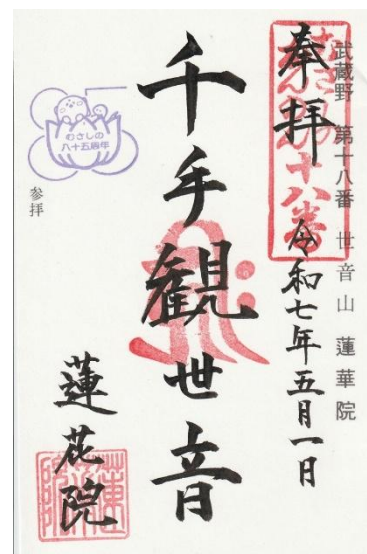 武蔵野 第十八番 世音山 蓮華院
奉拝
令和七年五月一日
千手観世音
蓮花院
むさしの
八十五周年
参拝